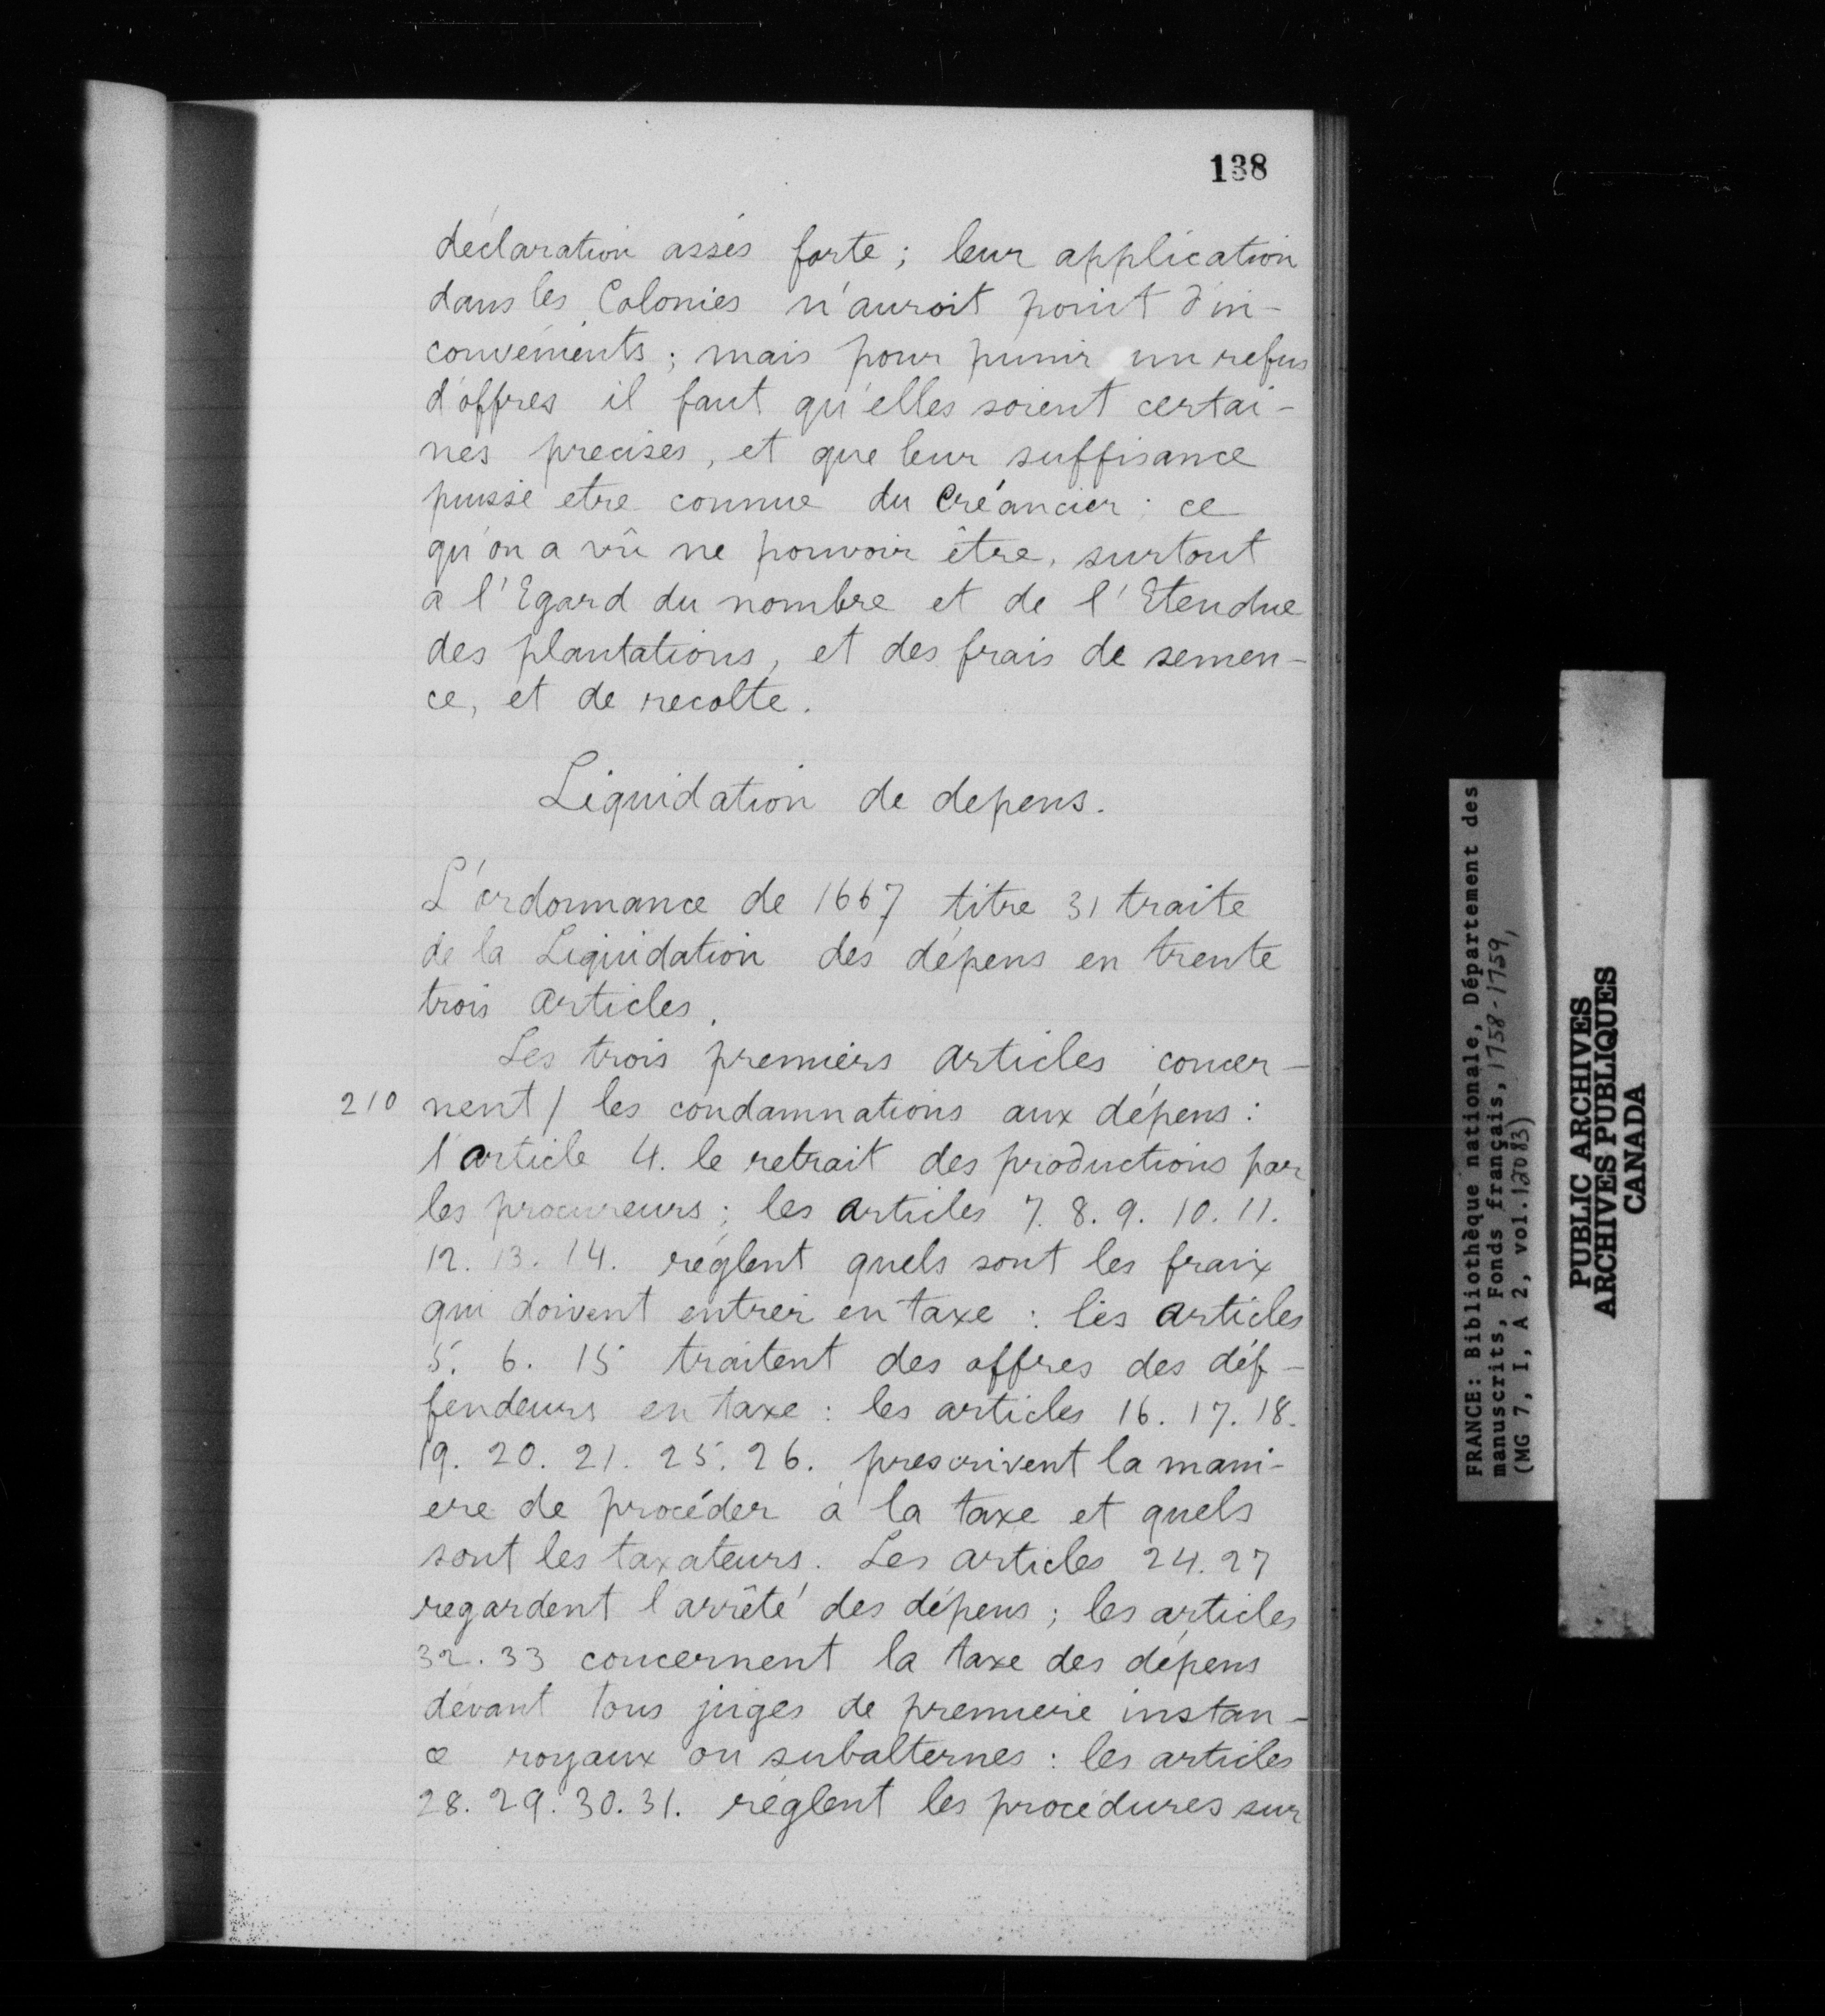 138
déclaration assés forte; leur application
dans les Colonies n'auroit point d'in-
convénients; mais pour punir un refus
d'offres il faut qu'elles soient certai-
nes precises, et que leur suffisance
puisse etre connue du Créancier; ce
qu'on a vû ne pouvoir être, surtout
a l'Egard du nombre et de l'Etendue
des plantations, et des frais de semen-
ce, et de recolte.
Liquidation de depens.
L'ordonnance de 1667 titre 31 traite
de la Liquidation des dépens en trente
trois articles.
Les trois premiers articles concer-
210 nent / les condamnations aux dépens:
l'article 4. le retrait des productions par
les procureurs; les articles 7. 8. 9. 10. 11.
12. 13. 14. réglent quels sont les fraix
qui doivent entrer en taxe: les articles
5. 6. 15 traitent des offres des déf-
fendeurs en taxe: les articles 16. 17. 18.
19. 20. 21. 25. 26. prescrivent la mani-
ere de procéder à la taxe et quels
sont les taxateurs. Les articles 24. 27
regardent l'arrêté des dépens; les articles
32. 33 concernent la taxe des dépens
devant tous juges de premiere instan-
ce royaux ou subalternes: les articles
28. 29. 30. 31. réglent les procédures sur
FRANCE: Bibliothèque nationale, Département des
manuscrits, Fonds français, 1758-1759,
(MG 7, I, A 2, vol. 12083)
PUBLIC ARCHIVES
ARCHIVES PUBLIQUES
CANADA